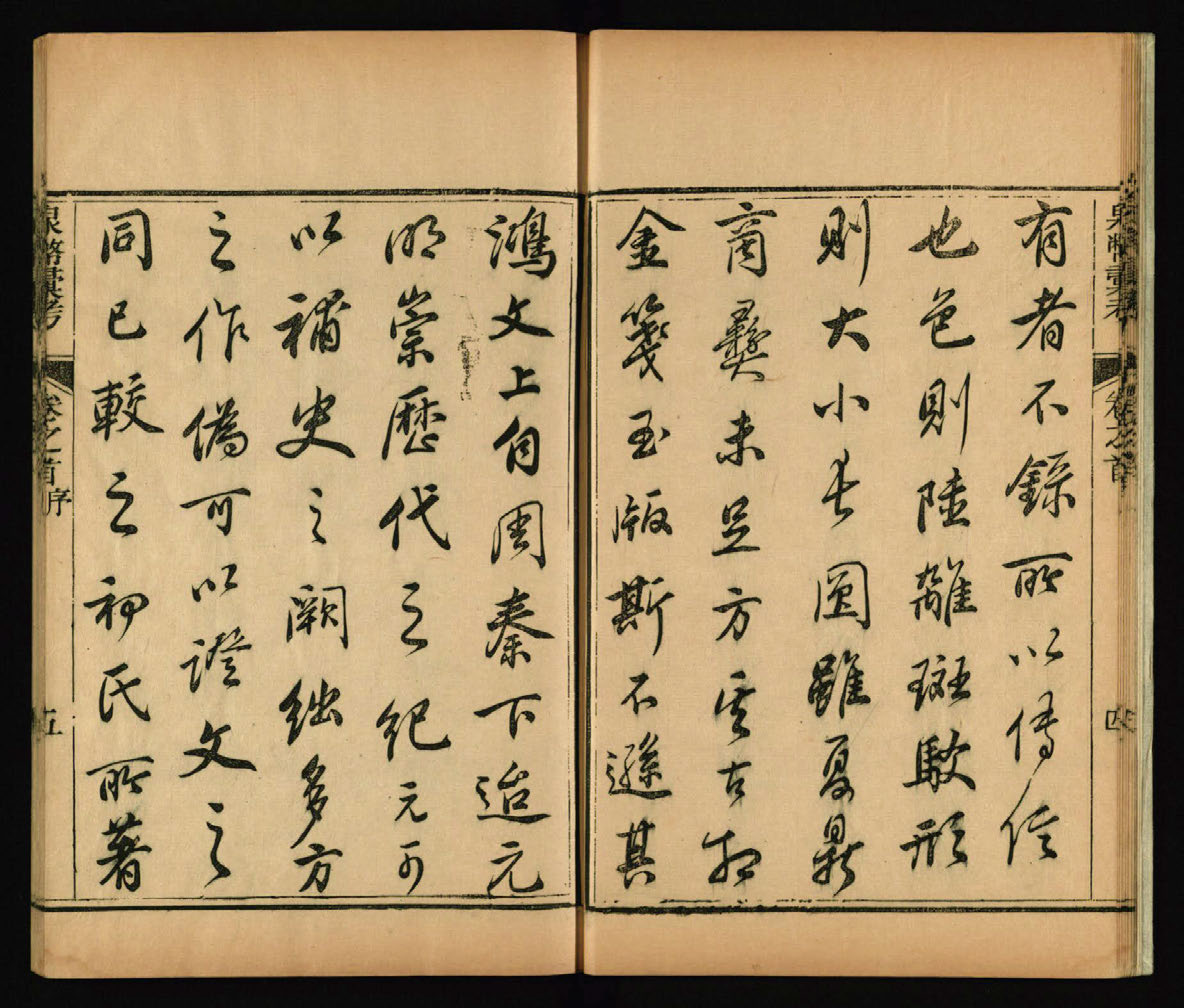 泉幣彙考 卷之首 四
有者不錄所以傳信
也色則陸離斑駁形
則大小長圓雖夏鼎
商彝未足方其古拙
金箋玉版斯不遜其
鴻文上自周秦下迨元
明崇歷代之紀元可
以補史之闕絀多方
之作偽可以證文之
同已較之初氏所著
泉幣彙考 卷之首序 五